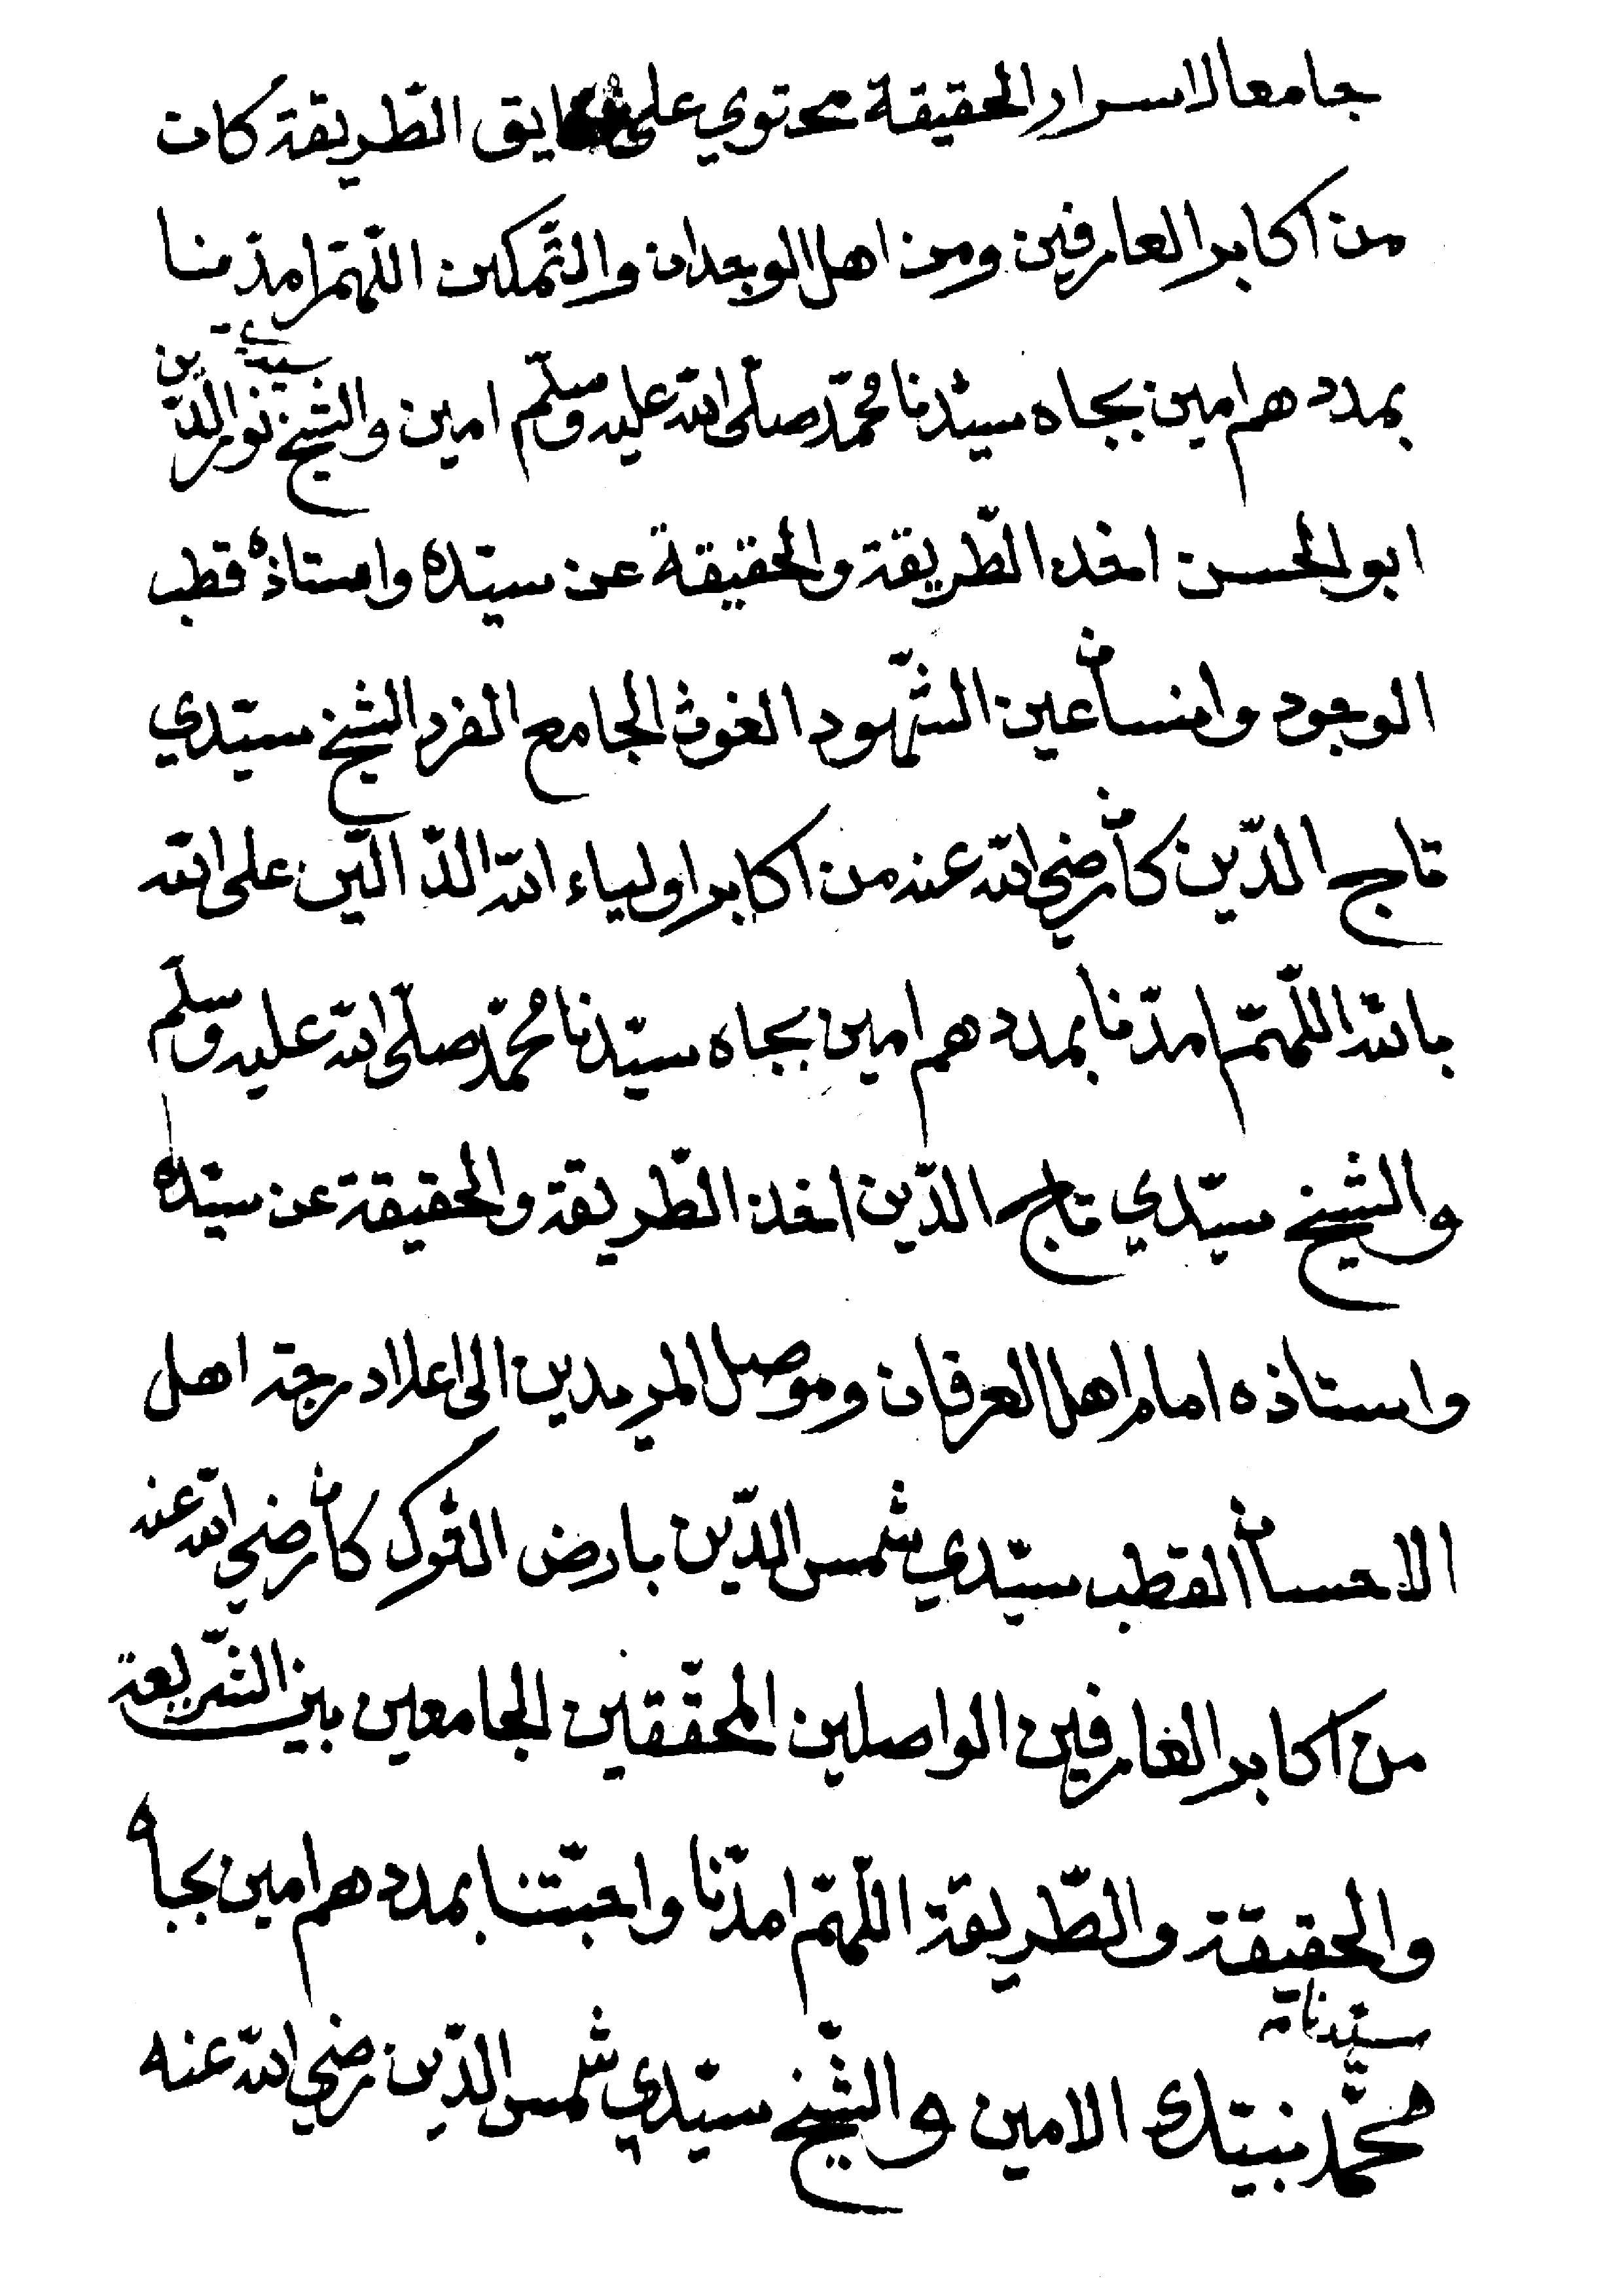 جامعا لاسرار الحقيقة محتوي على حقايق الطّريقة كان
من اكابر العارفين ومن اهل الوجدان والتّمكين اللّهمّ امدّنا
بمددهم امين بجاه سيّدنا محمّد صلّى الله عليه وسلّم امين والشيخ سيدي نور الدّين
ابو الحسن اخذ الطّريقة والحقيقة عن سيّده واستاذه قطب
الوجود وانسان عين الشّهود الغوث الجامع الفرد الشيخ سيّدي
تاج الدّين كان رضي الله عنه من اكابر اولياء الله الدّالّين على الله
بالله اللّهمّ امدّنا بمددهم امين بجاه سيّدنا محمّد صلّى الله عليه وسلّم
والشيخ سيّدي تاج الدّين اخذ الطّريقة والحقيقة عن سيّده
واستاذه امام اهل العرفان وموصل المريدين الى اعلا درجة اهل
الاحسان القطب سيّدي شمس الدّين بارض التّرك كان رضي الله عنه
من اكابر العارفين الواصلين المحقّقين الجامعين بين الشّريعة
والحقيقة والطّريقة اللّهمّ امدّنا واحبّتنا بمددهم امين بجاه
سيّدنا
محمّد نبيّك الامين والشّيخ سيّدي شمس الدّين رضي الله عنه